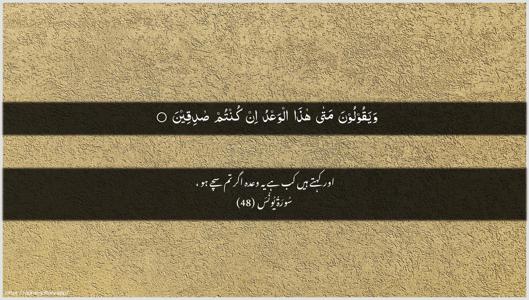 وَيَقُوۡلُوۡنَ مَتٰى هٰذَا الۡوَعۡدُ اِنۡ كُنۡتُمۡ صٰدِقِيۡنَ ○
اور کہتے ہیں کب ہے یہ وعدہ اگر تم سچے ہو ،
سُوۡرَةُ يُوۡنُسَ (48)